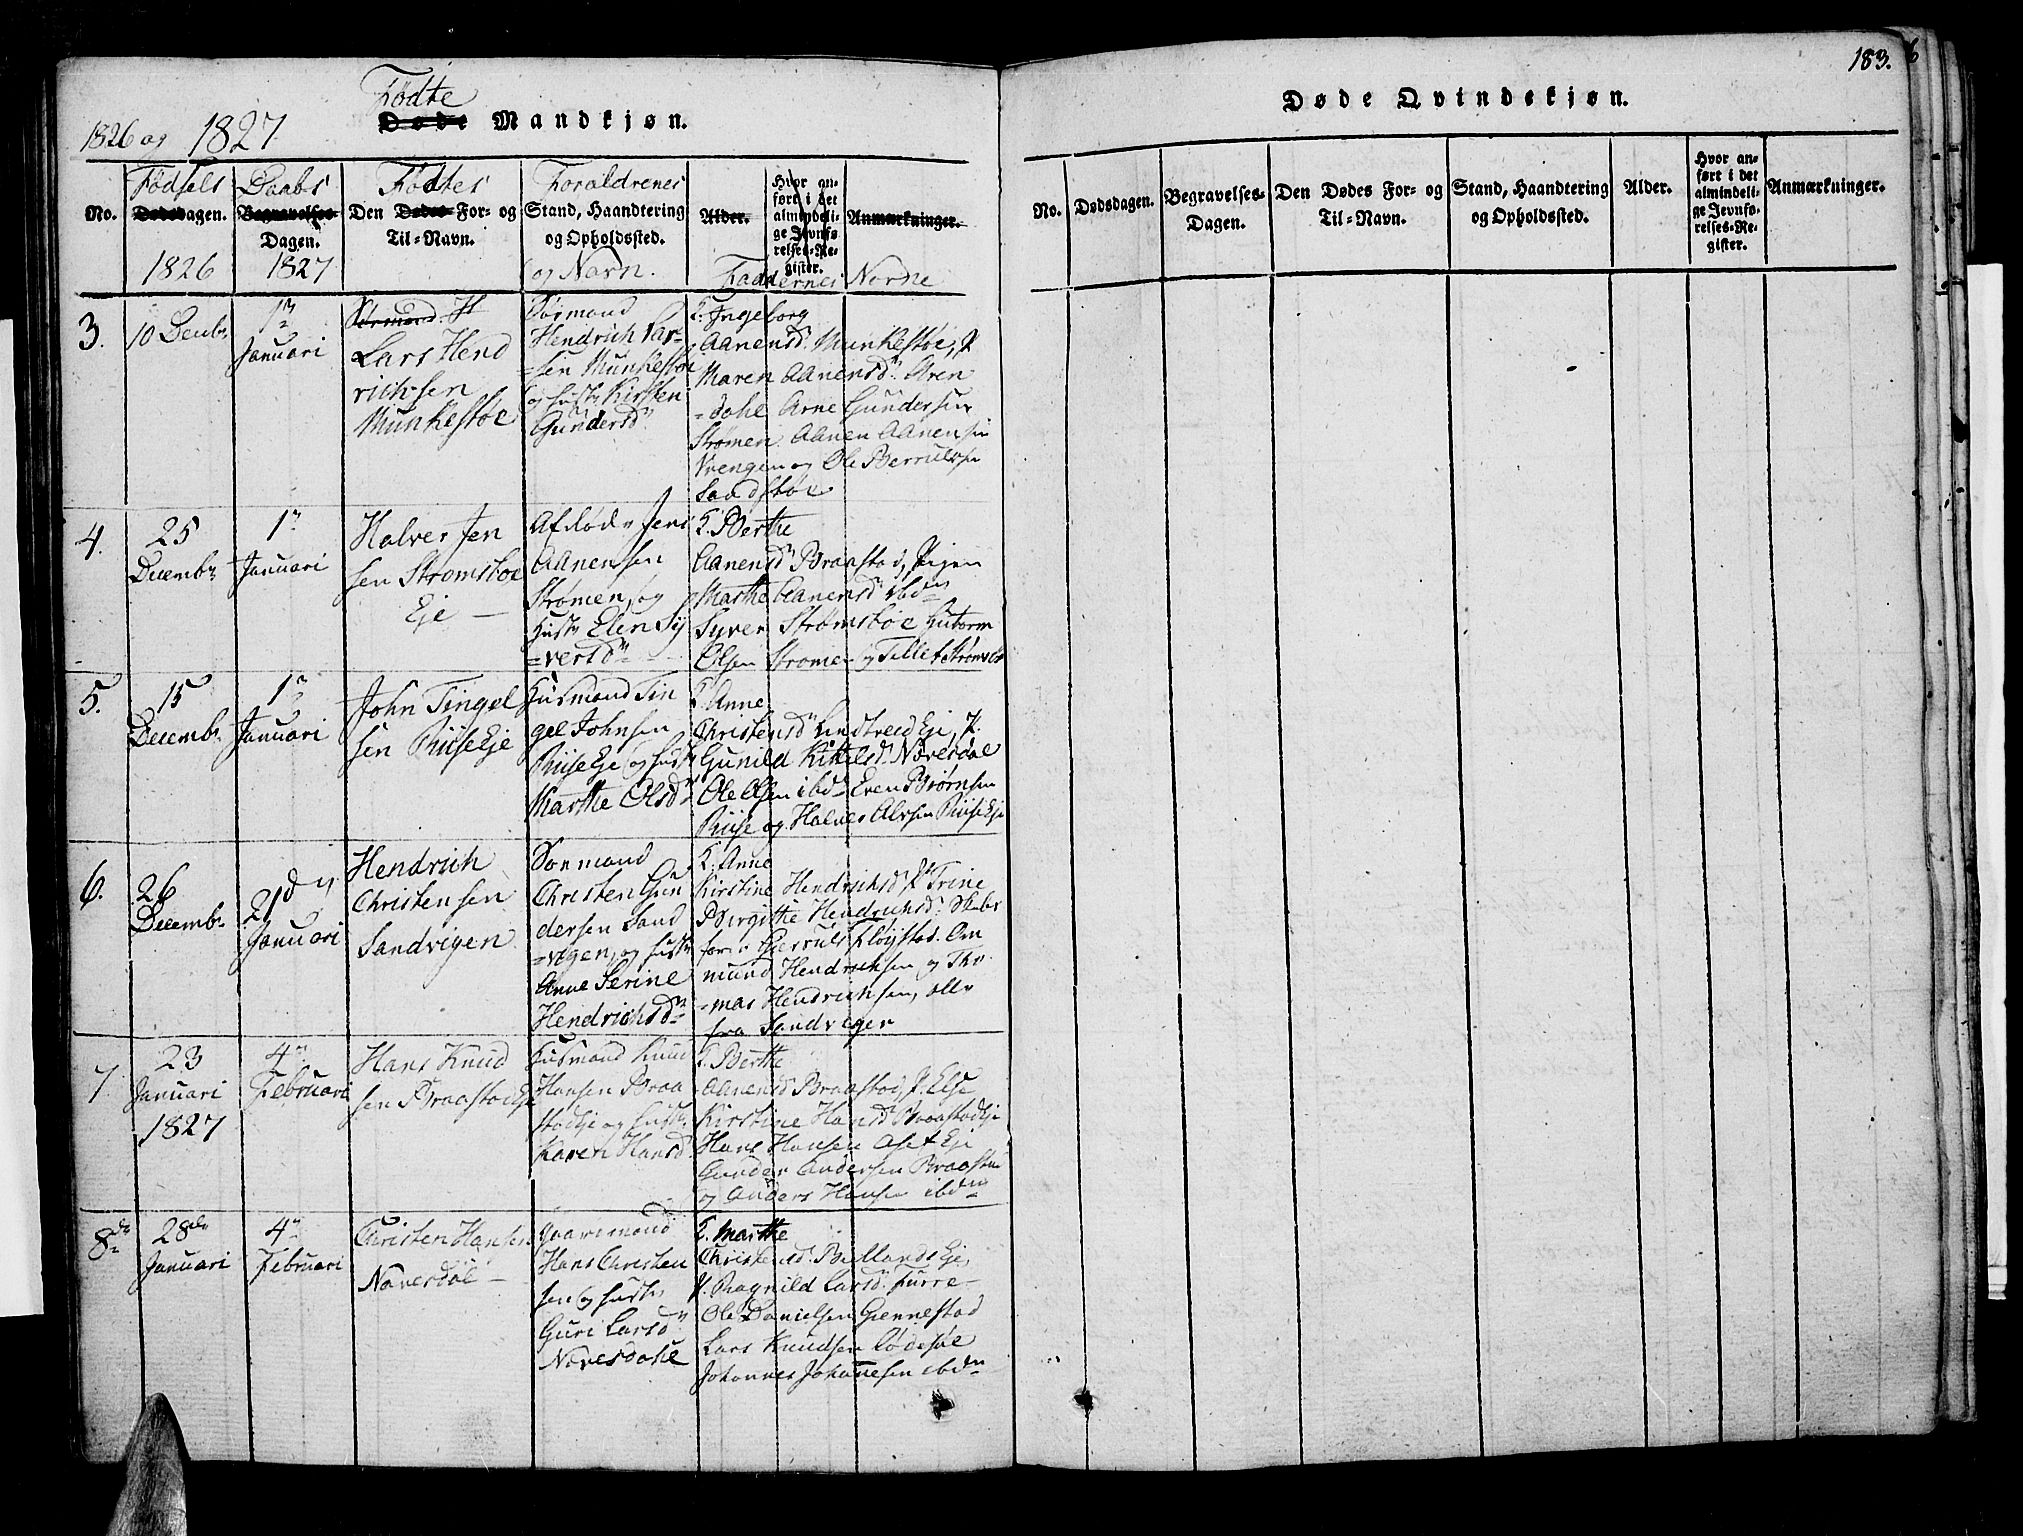 Fødte
1826 og 1827 Døde Mandkjøn.
Fødsels Daabs Fødtes Forældrenes
No. Dødsdagen. Begravelses- Dagen. Den Dødes For- og Til-Navn. Stand, Haandtering og Opholdssted. Alder. Hvor anført i det almindelige Jevnførelses-Register. Anmærkninger.
1826 1827 og Navn. Faddernes Navne
3. 10 Decbr. 1n Januari
Sørmand. H
Lars Hend
richsen
Munkestøe
Sørmand
Hendrich Lar-
=sen Munkestøe
og hustr Kirsten
Gundersd.
K. Ingeborg
Aanensd. Munkestøe, P.
Maren Aanensd. Aren
=dahl Arne Gundersen
Strømen. Aanen Aanensen
Vrengen og Ole Berrulsen
Sandstøe
4. 25
Decembr
1n
Januari
Halvor Jen
sen Strømsboe
Eje —
Afdød Jens
Aanensen
Strømen, og
Hustr Elen Sy
=versd.
K. Berthe
Aanensd. Braastad, Pigen
Marthe Aanensd. ibdm
Syver Strømsboe Gutorm
Olsen Strømen og Tellef Strømsb
5. 15
Decembr.
1n
Januari
John Tingel
sen Riise Eje
Husmand Tin
gel Johnsen
Riise Eje og hustr
Marthe Olsd.
K. Anne
Christensd. Lindtveid Eje, P.
Gunild Kittelsd. Naversdal
Ole Olsen ibdm Even Biørnsen
Riise og Halvor Alvsen Riise Eje
6. 26
Decembr.
21d
Januari
Hendrich
Christensen
Sandvigen
Sørmand
Christen Gun
dersen Sand
=vigen, og hustr
Anne Serine
Hendrichsd.
K. Anne
Kirstine Hendrichsd. P. Trine
Birgitthe Hendrichsd. Skibs
fører Gierruls Fløystad. Om
mund Hendrichsen og Tho
=mas Hendrichsen, alle
fra Sandvigen
7. 23
Januari
1827
4n
Februari
Hans Knud
sen Braastad Eje
Husmand Knud
Hansen Braa
stadeje og hustr.
Karen Hansd.
K. Berthe
Aanensd. Braastad, P. Else
Kirstine Hansd. Braastadeje
Hans Hansen Aset Eje
Gunder Andersen Braastad
og Anders Hansen ibdm
8de 28de
Januari
4n
Februari
Christen Hansen
Naversdal —
Gaardmand
Hans Christen
sen og hustr
Guri Larsd.
Naversdahl
K. Marthe
Christensd. Bellands Eje,
P. Ragnild Larsd. Furre-
Ole Danielsen Giennestad
Lars Knudsen Lødesøl
Johannes Johannesen ibdm
183. 6
Døde Qvindekjøn.
No. Dødsdagen. Begravelses- Dagen. Den Dødes For- og Til-Navn. Stand, Haandtering og Opholdssted. Alder. Hvor anført i det almindelige Jevnførelses-Register. Anmærkninger.